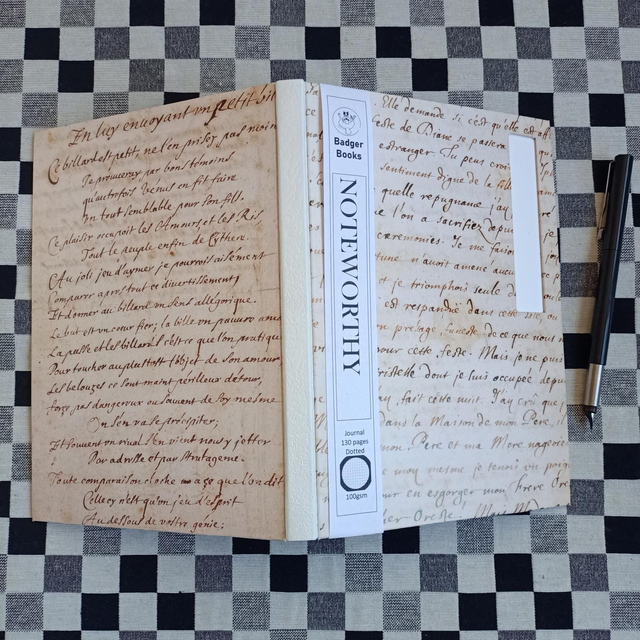 En luy envoyant un petit bil
Ce billard est petit, ne l'en prisez pas moin
Je prouveray par bons témoins
qu'autrefois Venus en fit faire
Un tout semblable pour son fils.
Ce plaisir occupoit les Amours et les Ris,
Tout le peuple enfin de Cythere.
Au joli jeu d'aymer je pourrois aisement
Comparer apres tout ce divertissement
Et donner au billard un sens allégorique.
Le but est un cœur fier; la bille un pauvre ama
La passe et les billard c'est ce que l'on pratique
Pour toucher au plustost l'objet de son amour
Les belouzes ce sont maint périlleux détour,
forçe pas dangereux ou souvent de soy mesme
On s'en va se précipiter;
Et souvent un rival s'en vient nous y jetter
Par adresse et par stratageme.
Toute comparaison cloche a ce que l'on dit
Celle cy n'est qu'un jeu d'esprit
Au dessous de vostre genie;
Badger
Books
NOTEWORTHY
Journal
130 pages
Dotted
100gsm
Elle demande si c'est qu'elle
este de Diane se passera
estranger. Tu peux croi
sentiment digne de la fille
quelle repugnance j'ay
l'on a sacrifiez depui
ceremonies. Je me
tune n'avoit amené aucun
et je triomphois seule de
est respandu dans cette
presage, funeste de ce que nous
pour cette feste. Mais je ne puis
dont je suis occupée depui
fait cette nuit. J'ay crû que
dans la Maison de mon Pere, il
mon Pere et ma Mere nageric
moy mesme je tenois un poign
pour en esgorger mon frere Ore
cher Oreste!